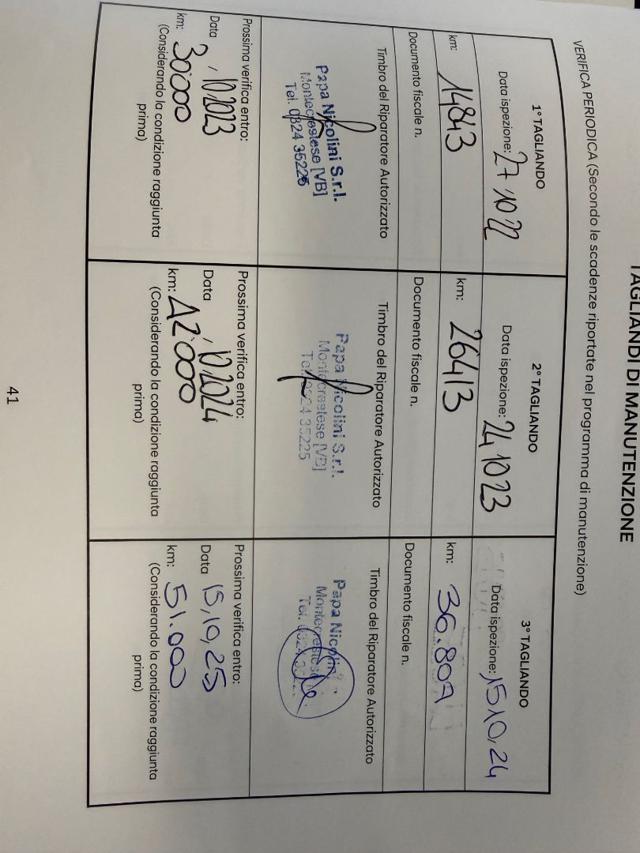 TAGLIANDI DI MANUTENZIONE
VERIFICA PERIODICA (Secondo le scadenze riportate nel programma di manutenzione)
1° TAGLIANDO
Data ispezione: 27.10.22
km: 14843
Documento fiscale n.
Timbro del Riparatore Autorizzato
Papa Nicolini S.r.l.
Montecrestese [VB]
Tel. 0324 35225
Prossima verifica entro:
Data , 10.2023
km: 30.000
(Considerando la condizione raggiunta
prima)
2° TAGLIANDO
Data ispezione: 24 10 23
km: 26413
Documento fiscale n.
Timbro del Riparatore Autorizzato
Papa Nicolini S.r.l.
Montecrestese [VB]
Tel. 0324 35225
Prossima verifica entro:
Data , 10.2024
km: 42.000
(Considerando la condizione raggiunta
prima)
3° TAGLIANDO
Data ispezione: 15,10,24
km: 36.809
Documento fiscale n.
Timbro del Riparatore Autorizzato
Papa Nicolini
Tel. 0324
Prossima verifica entro:
Data 15,10,25
km: 51.000
(Considerando la condizione raggiunta
prima)
41